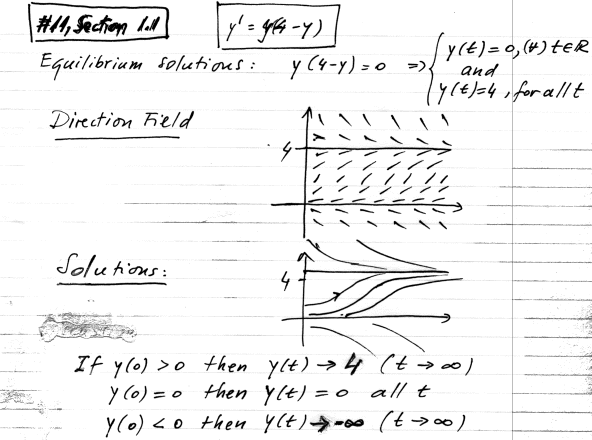 #11, Section 1.1
y' = y(4-y)
Equilibrium solutions: y(4-y)=0 ⇒ { y(t)=0, (∀) t∈ℝ
and
y(t)=4, for all t
Direction Field
4
Solutions:
4
If y(0) > 0 then y(t) → 4 (t → ∞)
y(0) = 0 then y(t) = 0 all t
y(0) < 0 then y(t) → -∞ (t → ∞)